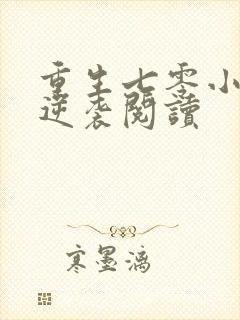 重生七零小
逆袭閱讀
寒墨漓